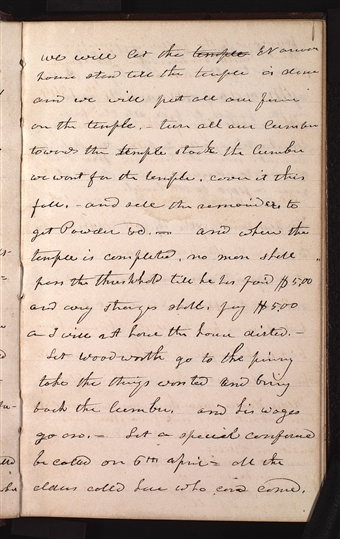 we will let the temple Nauvoo
house stand till the temple is done
and we will put all our force
on the temple. - turn all our lumber
towards the temple stock the lumber
we want for the temple. cover it this
fall. - and sell the remainder to
get Powder &c. — and when the
temple is completed, no man shall
pass the threshhold till he has paid $5,00
and every stranger shall pay $5,00
or I will not have the house dirtied. -
Let Woodworth go to the pinery
take the things wanted and bring
back the lumber. and his wages
go on. - Let a special conference
be called on 6th april = all the
elders called in who can come.